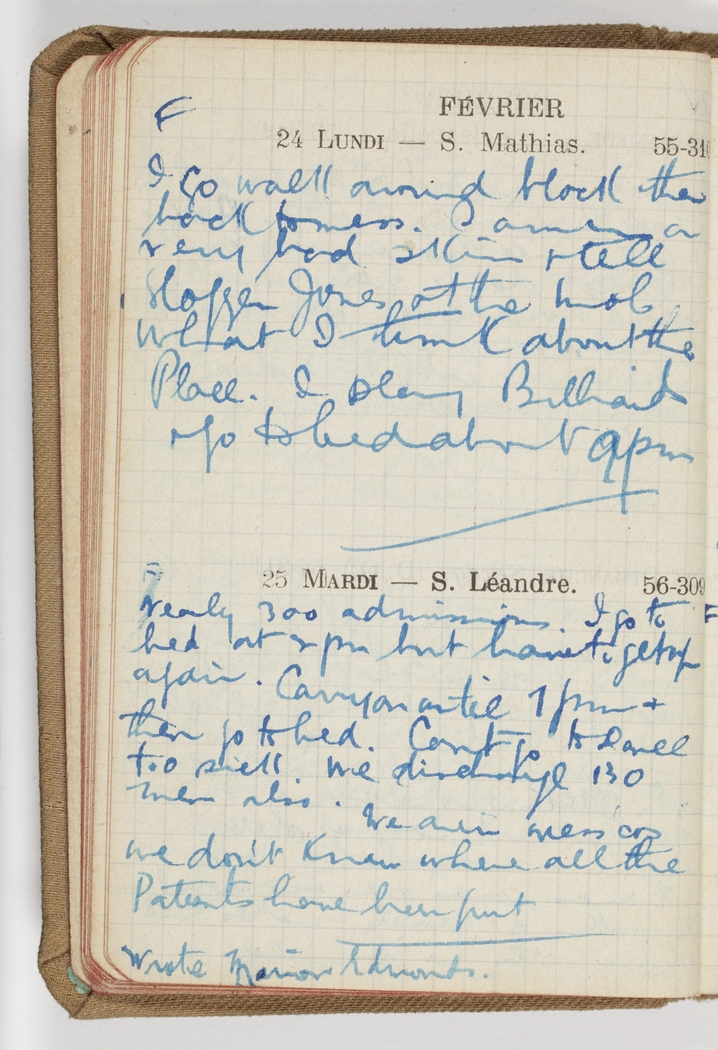 FÉVRIER
F
24 LUNDI — S. Mathias. 55-310
I go walk around block then
back to mess. I am in a
very bad skin & tell
Slogger Jones at the mob
what I think about the
Place. I play Billiards
& go to bed about 9pm
25 MARDI — S. Léandre. 56-309
F
nearly 300 admissions. I go to
bed at 2 pm but have to get up
again. Carry on until 7 pm &
then go to bed. Can't go to Dance
too sick. We discharge 130
men also. We are in mess cos
we don't know where all the
Patients have been put
Wrote Marion Edmonds.